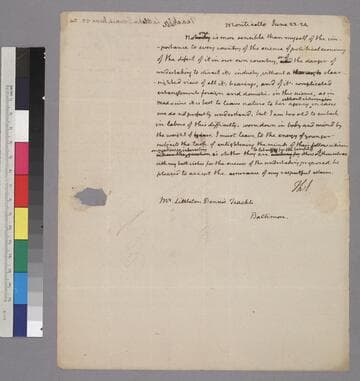 Monticello June 22. 24
Nobody is more sensible than myself of the im-
-portance to every country of the science of political economy
of the defect of it in our own country, and the danger of
undertaking to direct it's industry without a clear
sighted view of all it's bearings, and of it's complicated
entanglements foreign and domestic. in this science, as in
medicine it is best to leave nature to her agency in cases
we do not perfectly understand. but I am too old to embark
in labors of this difficulty. worn down in body and mind by
the weight of years, I must leave to the energy of younger
subjects the task of enlightening the minds of their fellow citizens
with my best wishes for the success of the undertaking proposed be
pleased to accept the assurance of my respectful esteem.
Th:J
Mr. Littleton Dennis Teackle
Baltimore.